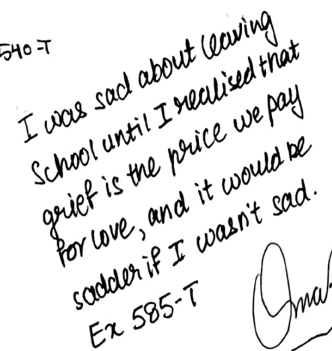 540-T
I was sad about leaving
School until I realised that
grief is the price we pay
for love, and it would be
sadder if I wasn't sad.
Ex 585-T